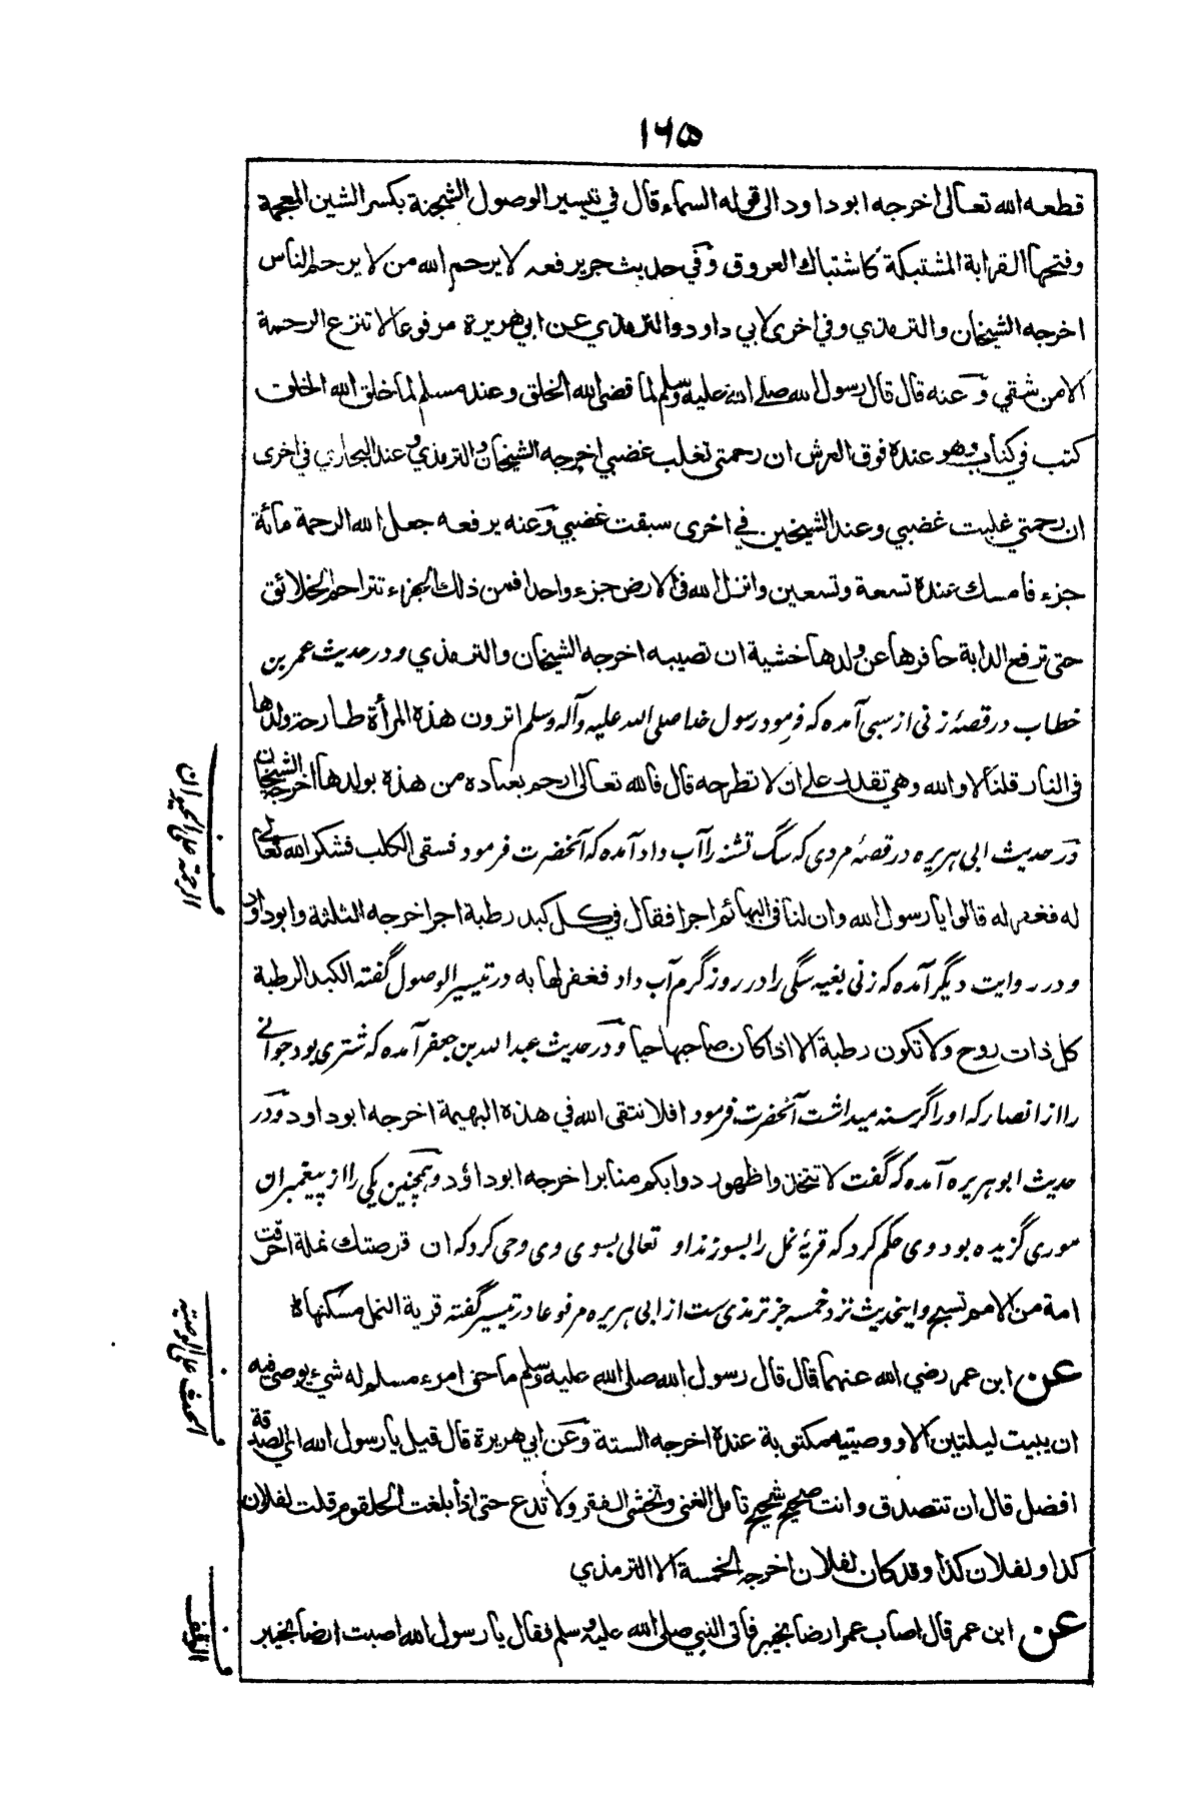 ۱۶۵
قطعه الله تعالى اخرجه ابو داود الى قوله السماء قال في تيسير الوصول الشجنة بكسر الشين المعجمة
وفتحها القرابة المشتبكة كاشتباك العروق وفي حديث جرير رفعه لا يرحم الله من لا يرحم الناس
اخرجه الشيخان والترمذي وفي اخرى لابي داود والترمذي عن ابي هريرة مرفوعا لا تنزع الرحمة
الا من شقي وعنه قال قال رسول الله صلے الله عليه وسلم لما قضى الله الخلق وعند مسلم لما خلق الله الخلق
كتب في كتاب وهو عنده فوق العرش ان رحمتي تغلب غضبي اخرجه الشيخان والترمذي وعند البخاري في اخرى
ان رحمتي غلبت غضبي وعند الشيخين في اخرى سبقت غضبي وعنه يرفعه جعل الله الرحمة مائة
جزء فامسك عنده تسعة وتسعين وانزل الله في الارض جزء واحدا فمن ذلك الجزء تتراحم الخلائق
حتى ترفع الدابة حافرها عن ولدها خشية ان تصيبه اخرجه الشيخان والترمذي ودر حديث عمر بن
خطاب در قصهٔ زنی از سبی آمده که فرمود رسول خدا صلی الله علیه وآله وسلم اترون هذه المرأة طارحة ولدها
في النار قلنا لا والله وهي تقدر على ان لا تطرحه قال فالله تعالى ارحم بعباده من هذه بولدها اخرجه الشيخان
ودر حدیث ابی هریره در قصهٔ مردی که سگ تشنه را آب داد آمده که آنحضرت فرمود فسقى الكلب فشكر الله تعالى
له فغفر له قالوا يا رسول الله وان لنا في البهائم اجرا فقال في كل كبد رطبة اجر اخرجه الثلثة وابو داود
ودر روایت دیگر آمده که زنی بغیه سگی را در روز گرم آب داد فغفر لها به در تیسیر الوصول گفته الكبد الرطبة
كل ذات روح ولا تكون رطبة الا اذا كان صاحبها حيا ودر حدیث عبد الله بن جعفر آمده که شتری بود جوانے
را از انصار که او را گرسنه میداشت آنحضرت فرمود افلا تتقى الله في هذه البهيمة اخرجه ابو داود ودر
حدیث ابو هریره آمده که گفت لا تتخذوا ظهور دوابكم منابر اخرجه ابو داؤد وهمچنین یکی را از پیغمبران
موری گزیده بود وی حکم کرد که قریهٔ نمل را بسوزند او تعالی بسوی وی وحی کرد که ان قرصتك نملة احرقت
امة من الامم تسبح واین حدیث نزد خمسه جز ترمذی ست از ابی هریره مرفوعا در تیسیر گفته قرية النمل مسكنها ه
عن ابن عمر رضي الله عنهما قال قال رسول الله صلى الله عليه وسلم ما حق امرء مسلم له شيء يوصي فيه
ان يبيت ليلتين الا ووصيته مكتوبة عنده اخرجه الستة وعن ابي هريرة قال قيل يا رسول الله اي الصدقة
افضل قال ان تتصدق وانت صحيح شحيح تامل الغنى وتخشى الفقر ولا تدع حتى اذا بلغت الحلقوم قلت لفلان
كذا ولفلان كذا وقد كان لفلان اخرجه الخمسة الا الترمذي
عن ابن عمر قال اصاب عمر ارضا بخيبر فاتى النبي صلى الله عليه وسلم فقال يا رسول الله اصبت ارضا بخيبر
الرحمة على الحيوان
الحث على الوصية
الوقف